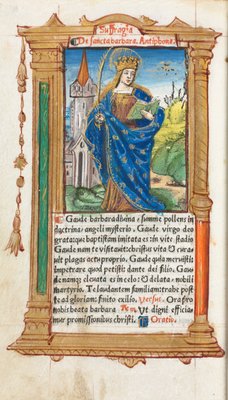 Suffragia
De sancta barbara. Antiphone.
Gaude barbara diuina / summe pollens in
doctrina: angeli mysterio. Gaude virgo deo
grata: que baptistam imitata es: in vite stadio
Gaude nam te visitauit: christus vita & curauit
plagas actu proprio. Gaude quia meruisti
impetrare quod petisti: dante dei filio. Gau
de nanque eleuata es in celo: & delata, nobili
martyrio. Te laudantem familiam: trahe post
te ad gloriam: finito exilio. Versus. Ora pro
nobis beata barbara Res. Ut digni efficia
mur promissionibus christi. Oratio.